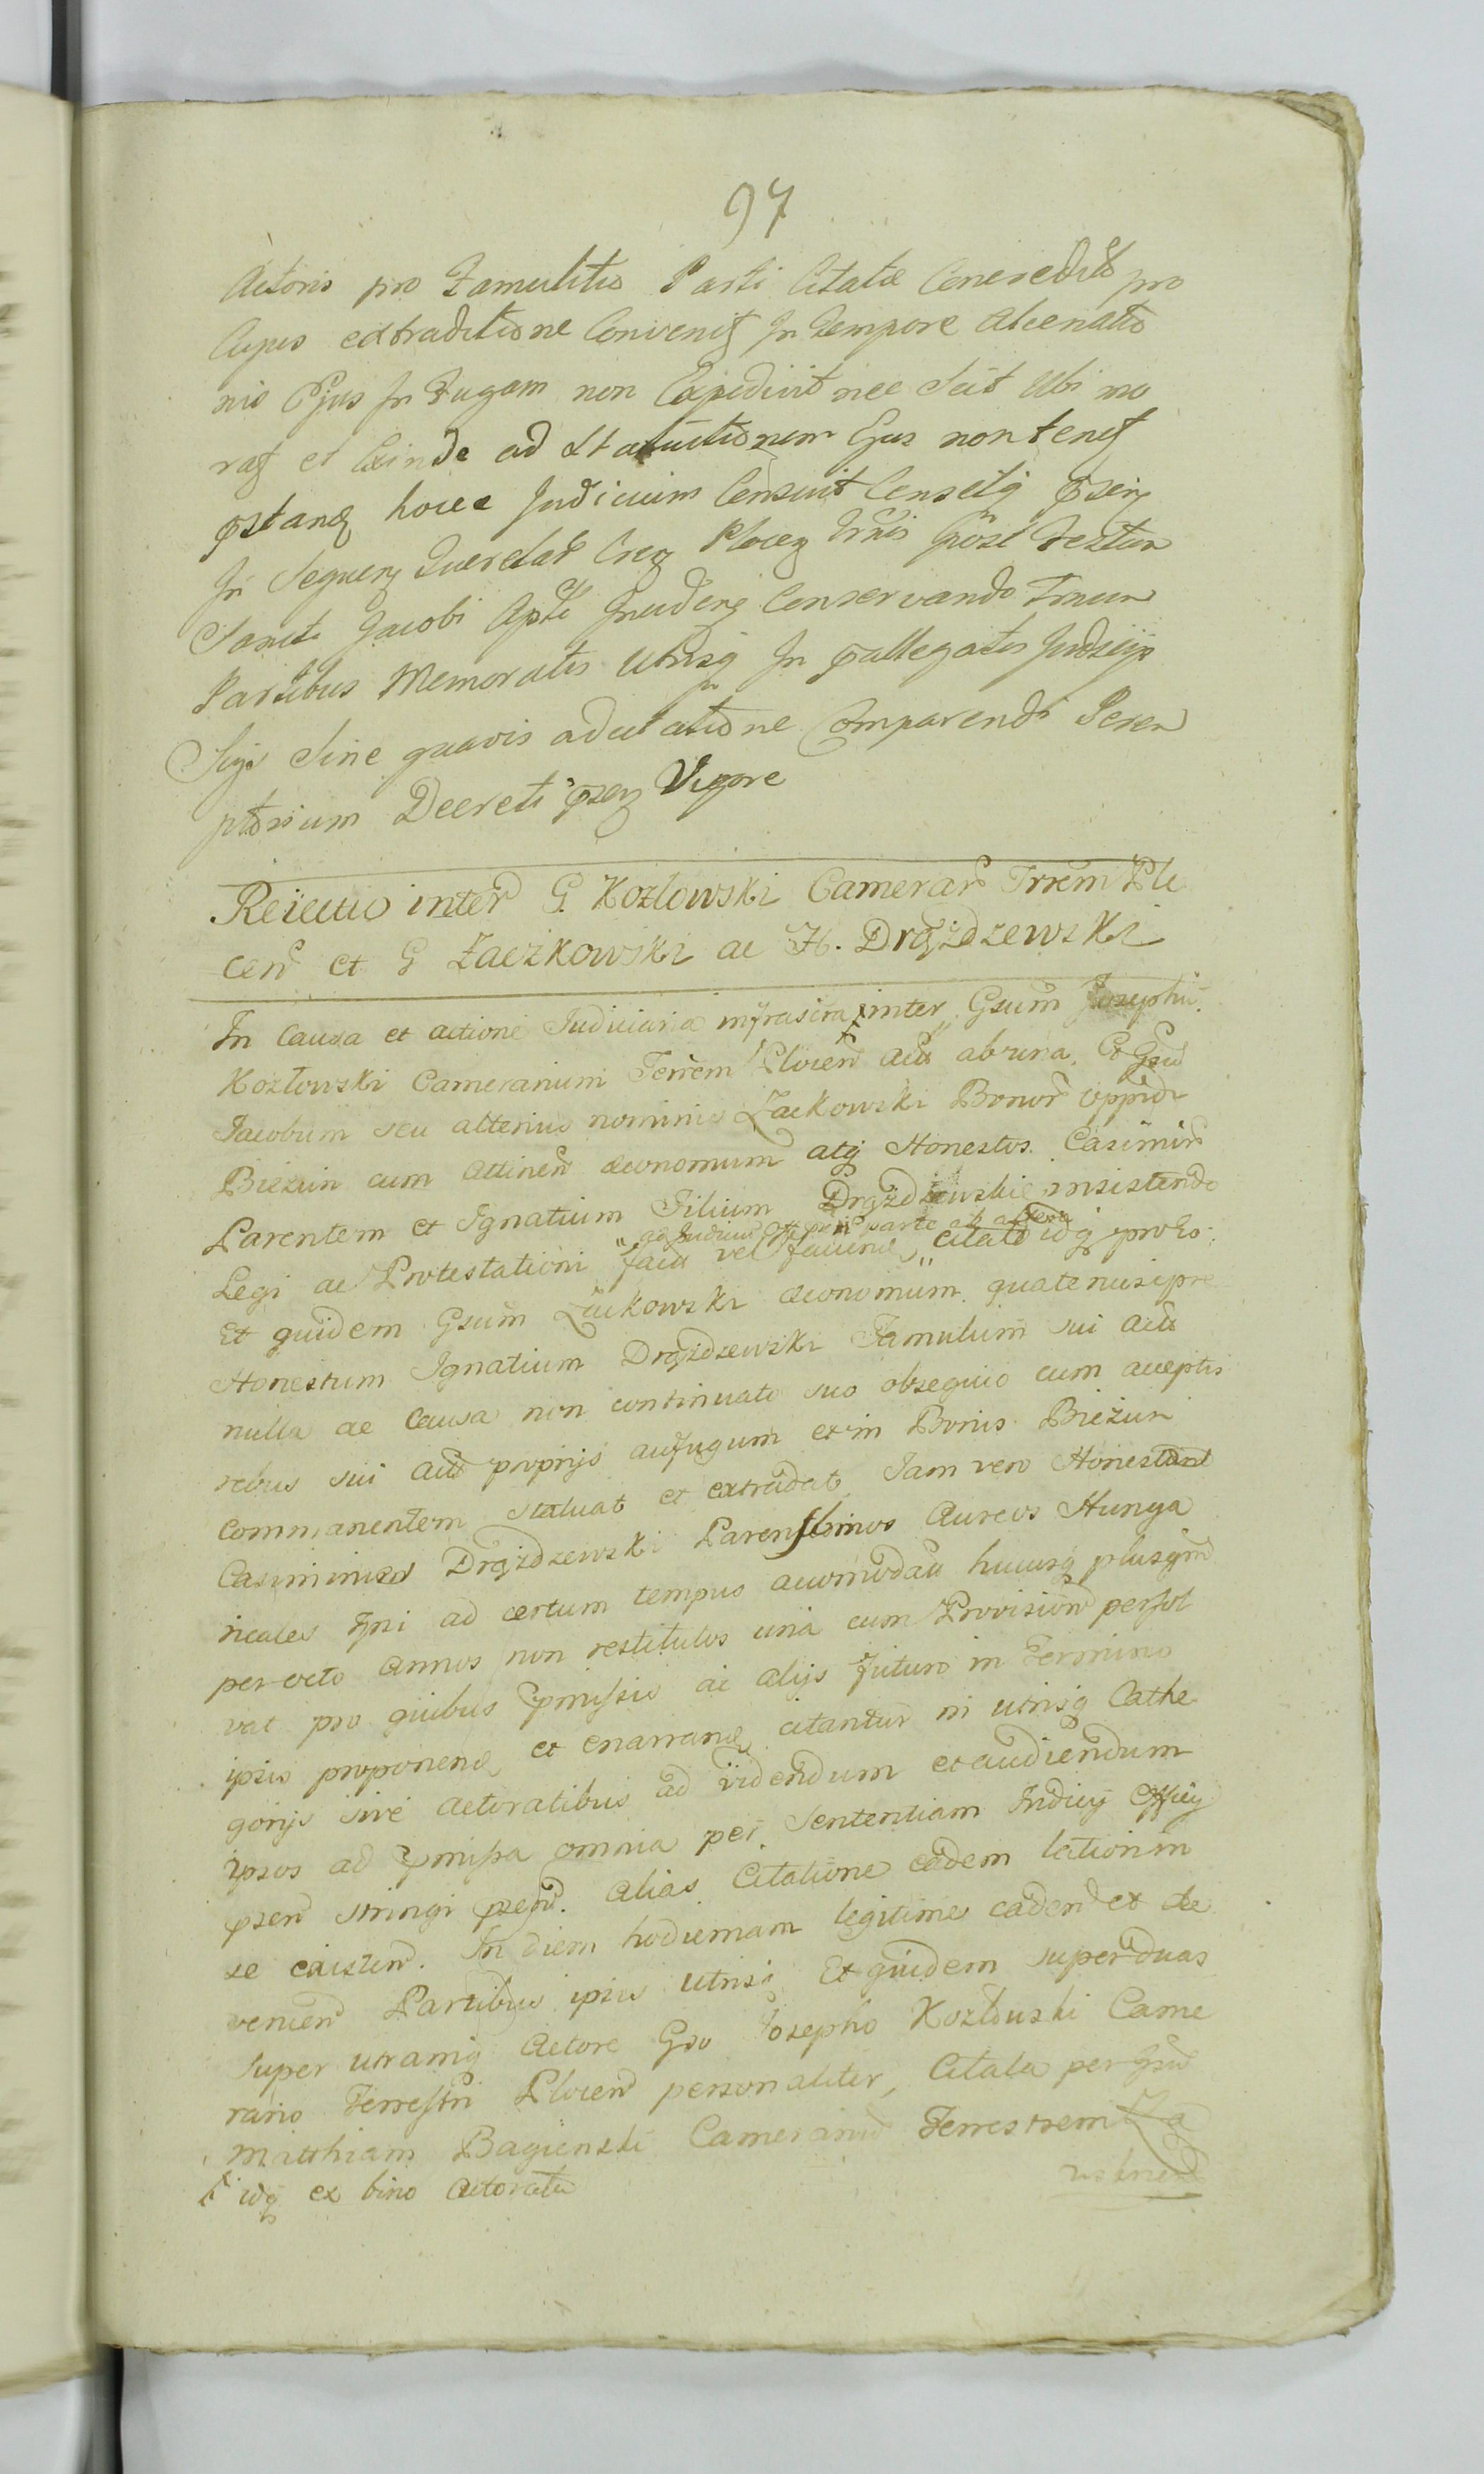 97
Actoris pro Famulitio Parti Citatæ Concredito pro
Cujus extraditione Convenit In Tempore alienatio
nis Ejus In Fugam non Expedivit nec Scit Ubi mo
rat et Exinde ad Statuitionem Ejus non tenet
pstand hocce Judicium Censuit Censetq psen
In Sequen Querelar Cren Plocen Trnis post Festum
Sancti Jacobi Apti Inciden Conservando Trnum
Partibus Memoratis Utrisq In pallegatis Judicijs
Sijs Sine quavis adcitatione Comparendi Perem
ptorium Decreti psen Vigore
Reiectio inter G. Kozłowski Camerar Trrem Plo
cen et G Zaczkowski ac H. Drążdzewski
In Causa et actione Judiciaria infrascra inter Gsum Josephu
Kozłowski Camerarium Terrem Plocen Acta ab una, Et Gsu
Jacobum seu alterius nominis Zackowski Bonor oppidi
Bieżun cum attinen œconomum atq Honestos Casimir
Parentem et Ignatium Filium Drążdzewskie insistendo
ad Judiciu Offi parte ab altera
Legi ac Protestationi factæ vel faciend, citato idq pro
Et quidem Gsum Zackowski œconomum quatenus ipse
Honestum Ignatium Drążdzewski Famulum sui Acto
nulla de Causa non continuato suo obsequio cum acceptis
rebus sui Acto proprijs aufugum et in Bonis Bieżun
Commanentem statuat et extradat, Jam vero Honestus
Casimirus Drążdzewski Parens binos Aureos Hunga
ricales Ipsi ad certum tempus accomodatu hucusq plusqm
per octo Annos non restitutos una cum Provisione persol
vat pro quibus pmissis ac alijs futuro in Termino
ipsis proponend et enarrand citantur in utrisq Cathe
gorijs sive actoratibus ad videndum et audiendum
ipsos ad pmissa omnia per Sententiam Judicij Officij
psen stringi psen. Alias Citatione eadem lationem
se existen. In diem hodiernam legitime caden et de
venien Partibus ipsis Utrisq Et quidem super duas
super utramq Actore Gso Josepho Kozłowski Came
rario Terrestri Plocen personaliter, Citata per Gsu
Matthiam Bagienski Cameranu Terrestrem Za
idq ex bino Actoratu